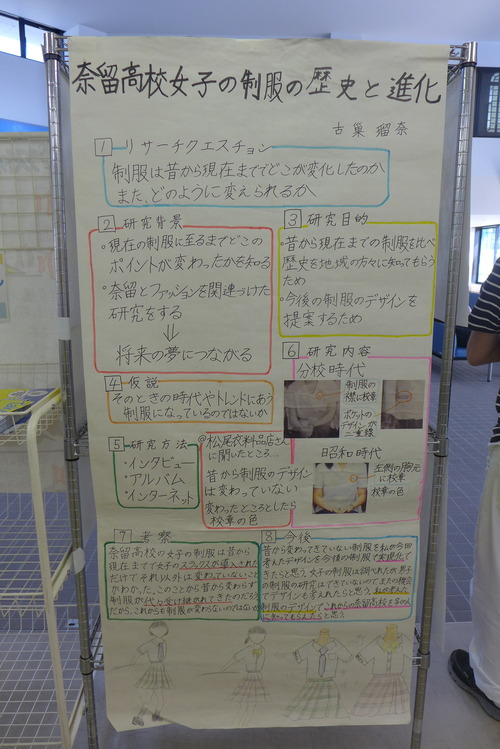 奈留高校女子の制服の歴史と進化
古巣 瑠奈
1 リサーチクエスチョン
制服は昔から現在まででどこが変化したのか
また、どのように変えられるか
2 研究背景
・現在の制服に至るまでどこの
ポイントが変わったかを知る
・奈留とファッションを関連づけた
研究をする
⇓
将来の夢につながる
3 研究目的
・昔から現在までの制服を比べ
歴史を地域の方々に知ってもらう
ため
・今後の制服のデザインを
提案するため
4 仮説
そのときの時代やトレンドにあう
制服になっているのではないか
5 研究方法
・インタビュー
・アルバム
・インターネット
@松尾衣料品店さん
に聞いたところ…
昔から制服のデザイン
は変わっていない
変わったところとしたら
校章の色
6 研究内容
分校時代
制服の
襟に校章
ポケットの
デザインが
二重線
昭和時代
左側の胸元
に校章
校章の色
7 考察
奈留高校の女子の制服は昔から
現在までで女子のスラックスが導入された
だけでそれ以外は変わっていないことが
わかった。このことから昔から変わらず
制服が代々受け継がれてきたのだろう。
だから、これからも制服が変わらないのではないか
8 今後
昔から変わってきていない制服を私が今回
考えたデザインを今後の制服で実現化で
きたらと思う。女子の制服は調べれたが男子
の制服の研究はできていないのでまたの機会
でデザインも考えれたらと思う。私が考えた
制服のデザインでこれからの奈留高校を
知ってもらえたらと思う。